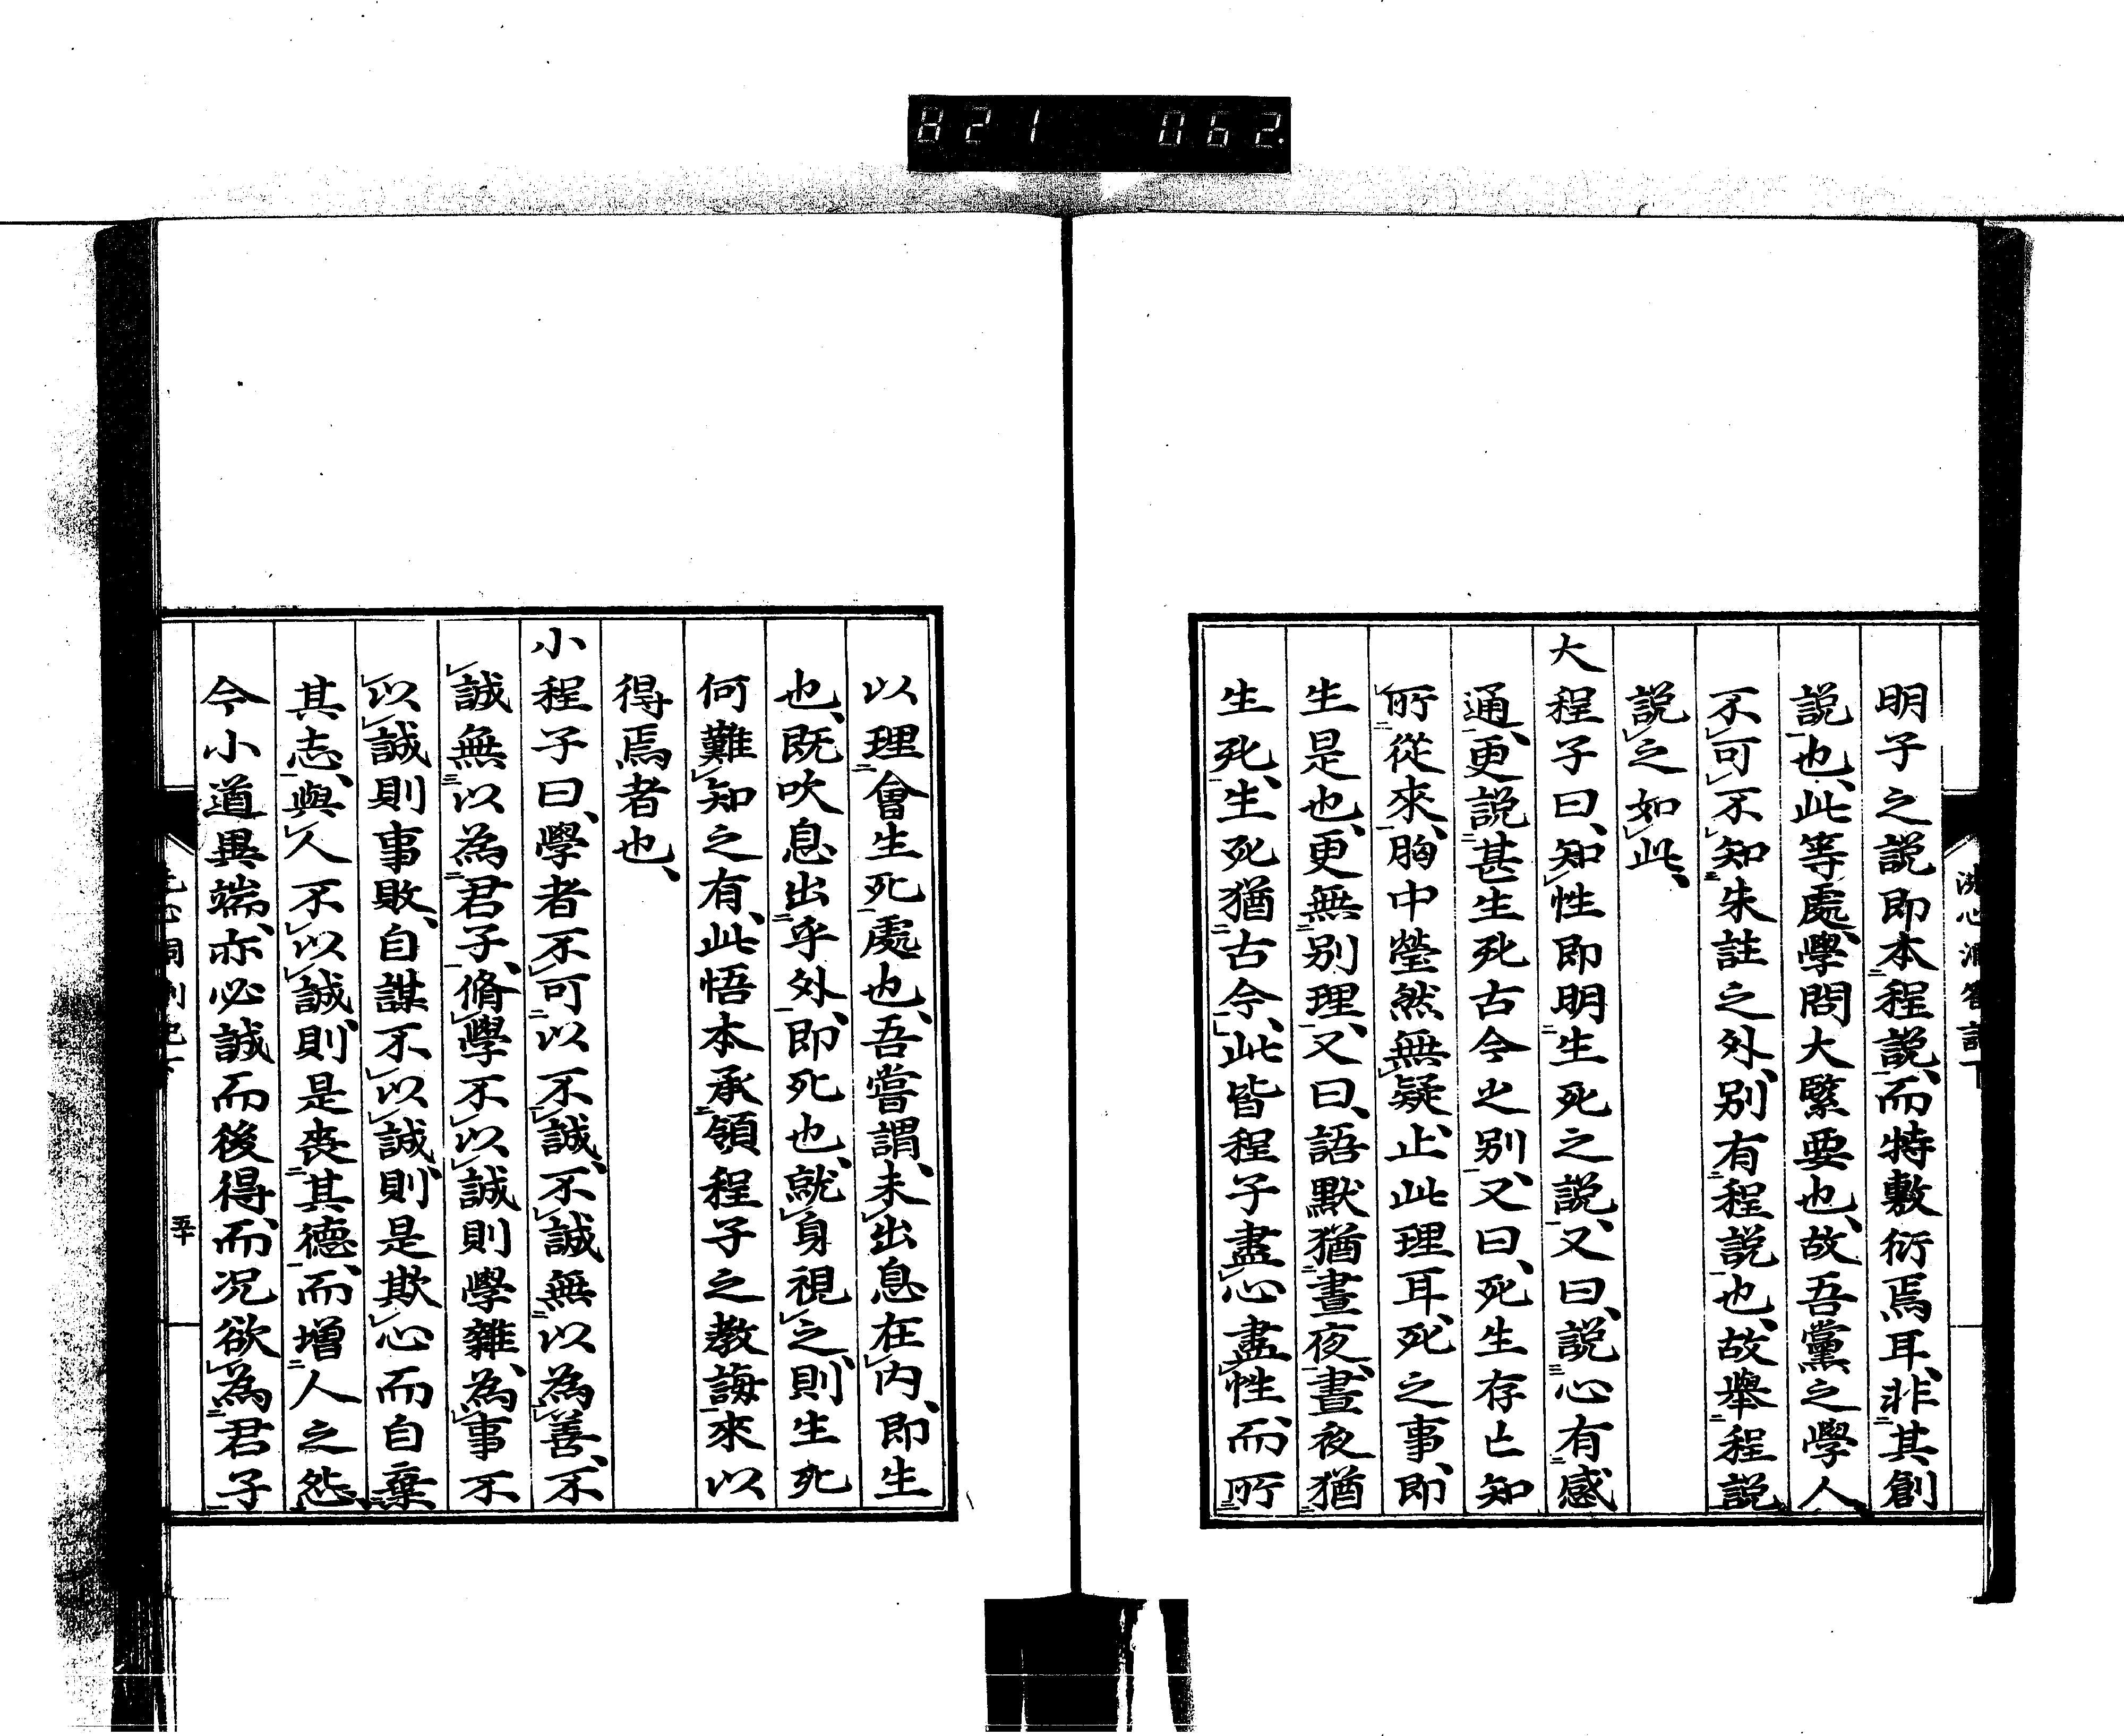 821 062.
明子之説即本程説、而特敷衍焉耳、非其創
説也、此等處、學問大緊要也、故吾黨之學人
不可不知朱註之外、別有程説也、故舉程説
説之如此、
大程子曰、知性即明生死之説、又曰、説心有感
通、更説甚生死古今之別、又曰、死生存亡知
所從來、胸中瑩然無疑、止此理耳、死之事、即
生是也、更無別理、又曰、語默猶晝夜、晝夜猶
生死、生死猶古今、此皆程子盡心盡性而、所
以理會生死處也、吾嘗謂、未出息在内、即生
也、既吹息出乎外、即死也、就身視之、則生死
何難知之有、此悟本承領程子之教誨來以
得焉者也、
小程子曰、學者不可以不誠、不誠無以為善、不
誠無以為君子、脩學不以誠則學雜、為事不
以誠則事敗、自謀不以誠、則是欺心而自棄
其志、與人不以誠、則是喪其德、而增人之怨、
今小道異端、亦必誠而後得、而況欲為君子
五十